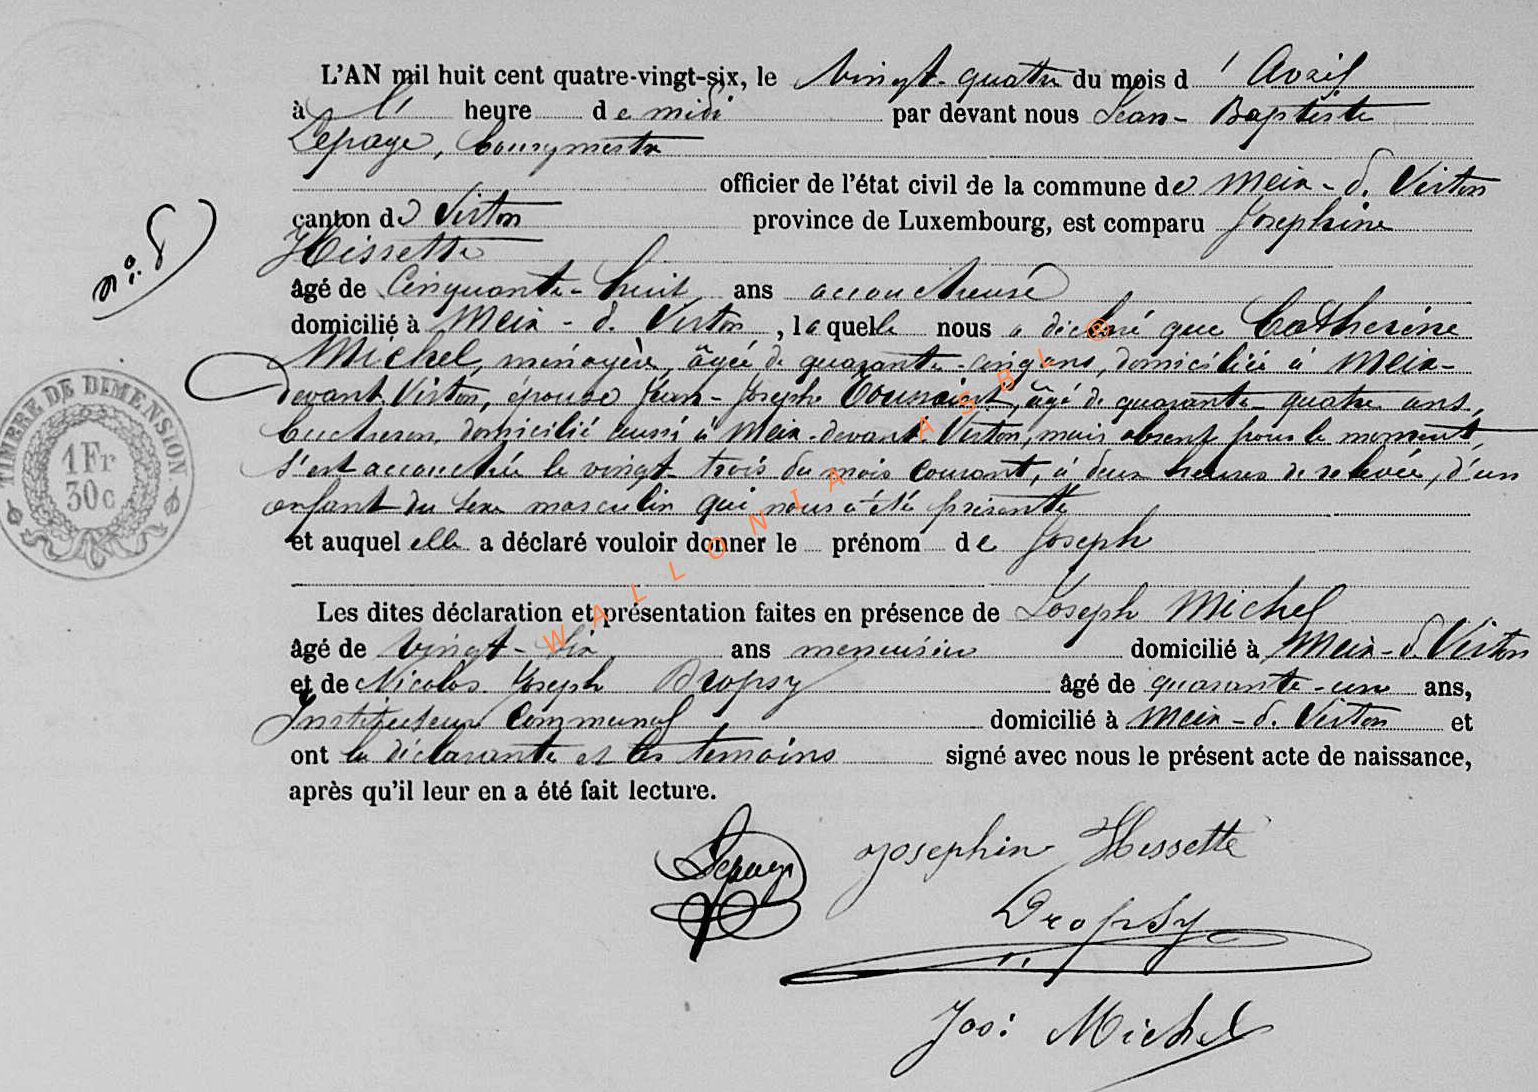 L'AN mil huit cent quatre-vingt-six, le vingt-quatre du mois d' Avril
à l' heure de midi par devant nous Jean-Baptiste
Lepage, bourgmestre
officier de l'état civil de la commune de Meix-d. Virton
canton de Virton province de Luxembourg, est comparu Josephine
Hissette
âgé de Cinquante-huit ans accoucheuse
domicilié à Meix-d. Virton, laquelle nous a déclaré que Catherine
Michel, ménagère, âgée de quarante-cinq ans, domiciliée à Meix-
devant Virton, épouse Jean-Joseph, âgé de quarante-quatre ans,
domicilié aussi à Meix-devant-Virton, mais absent pour le moment,
s'est accouchée le vingt trois du mois courant, à deux heures de relevée, d'un
enfant du sexe masculin qui nous a été présenté
et auquel elle a déclaré vouloir donner le prénom de Joseph
Les dites déclaration et présentation faites en présence de Joseph Michel
âgé de vingt-six ans menuisier domicilié à Meix-d. Virton
et de Nicolas Joseph Dropsy âgé de quarante-un ans,
Instituteur Communal domicilié à Meix-d. Virton et
ont la déclarante et les temoins signé avec nous le présent acte de naissance,
après qu'il leur en a été fait lecture.
n°. 8
TIMBRE DE DIMENSION
1 Fr
30c
WALLONIA ASBL ®
Lepage
Josephine Hissette
Dropsy
Jos: Michel